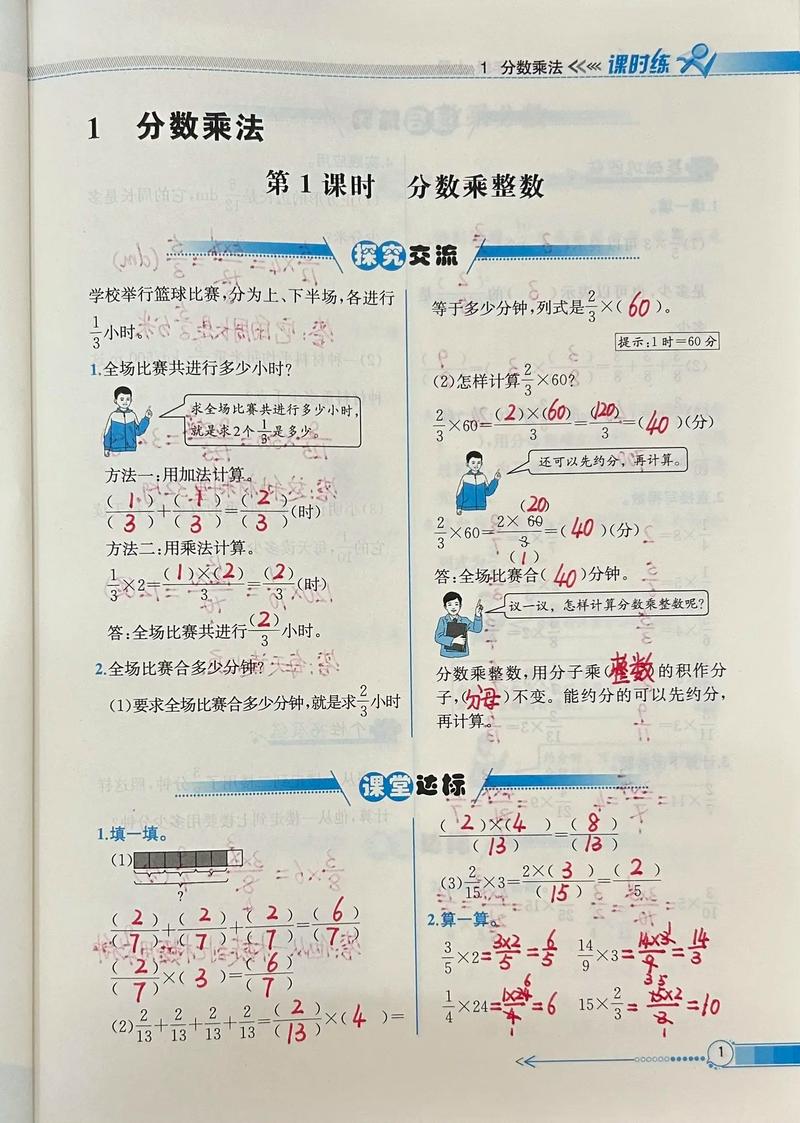 1 分数乘法 课时练
1 分数乘法
第1课时 分数乘整数
探究交流
学校举行篮球比赛,分为上、下半场,各进行
1/3小时。
1.全场比赛共进行多少小时?
求全场比赛共进行多少小时,
就是求2个1/3是多少。
方法一:用加法计算。
(1)/(3)+(1)/(3)=(2)/(3)(时)
方法二:用乘法计算。
1/3×2=(1)×(2)/3=(2)/3(时)
答:全场比赛共进行(2)/3小时。
2.全场比赛合多少分钟?
(1)要求全场比赛合多少分钟,就是求2/3小时
等于多少分钟,列式是2/3×(60)。
提示:1时=60分
(2)怎样计算2/3×60?
2/3×60=(2)×(60)/3=(120)/3=(40)(分)
还可以先约分,再计算。
(20)
2/3×60=2×60/3=(40)(分)
(1)
答:全场比赛合(40)分钟。
议一议,怎样计算分数乘整数呢?
分数乘整数,用分子乘(整数)的积作分
子,(分母)不变。能约分的可以先约分,
再计算。
课堂达标
1.填一填。
(1)
?
(2)/(7)+(2)/(7)+(2)/(7)=(6)/(7)
(2)/(7)×(3)=(6)/(7)
(2)2/13+2/13+2/13+2/13=(2)/(13)×(4)=
(2)×(4)/(13)=(8)/(13)
(3)2/15×3=2×(3)/(15)=(2)/5
2.算一算。
3/5×2=3×2/5=6/5 14/9×3=14×3/9=14/3
1/4×24=1×24/4=6 15×2/3=15×2/3=10
1